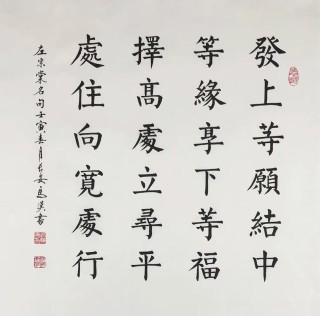 發上等願結中
等緣享下等福
擇高處立尋平
處住向寬處行
左宗棠名句壬寅春月長安